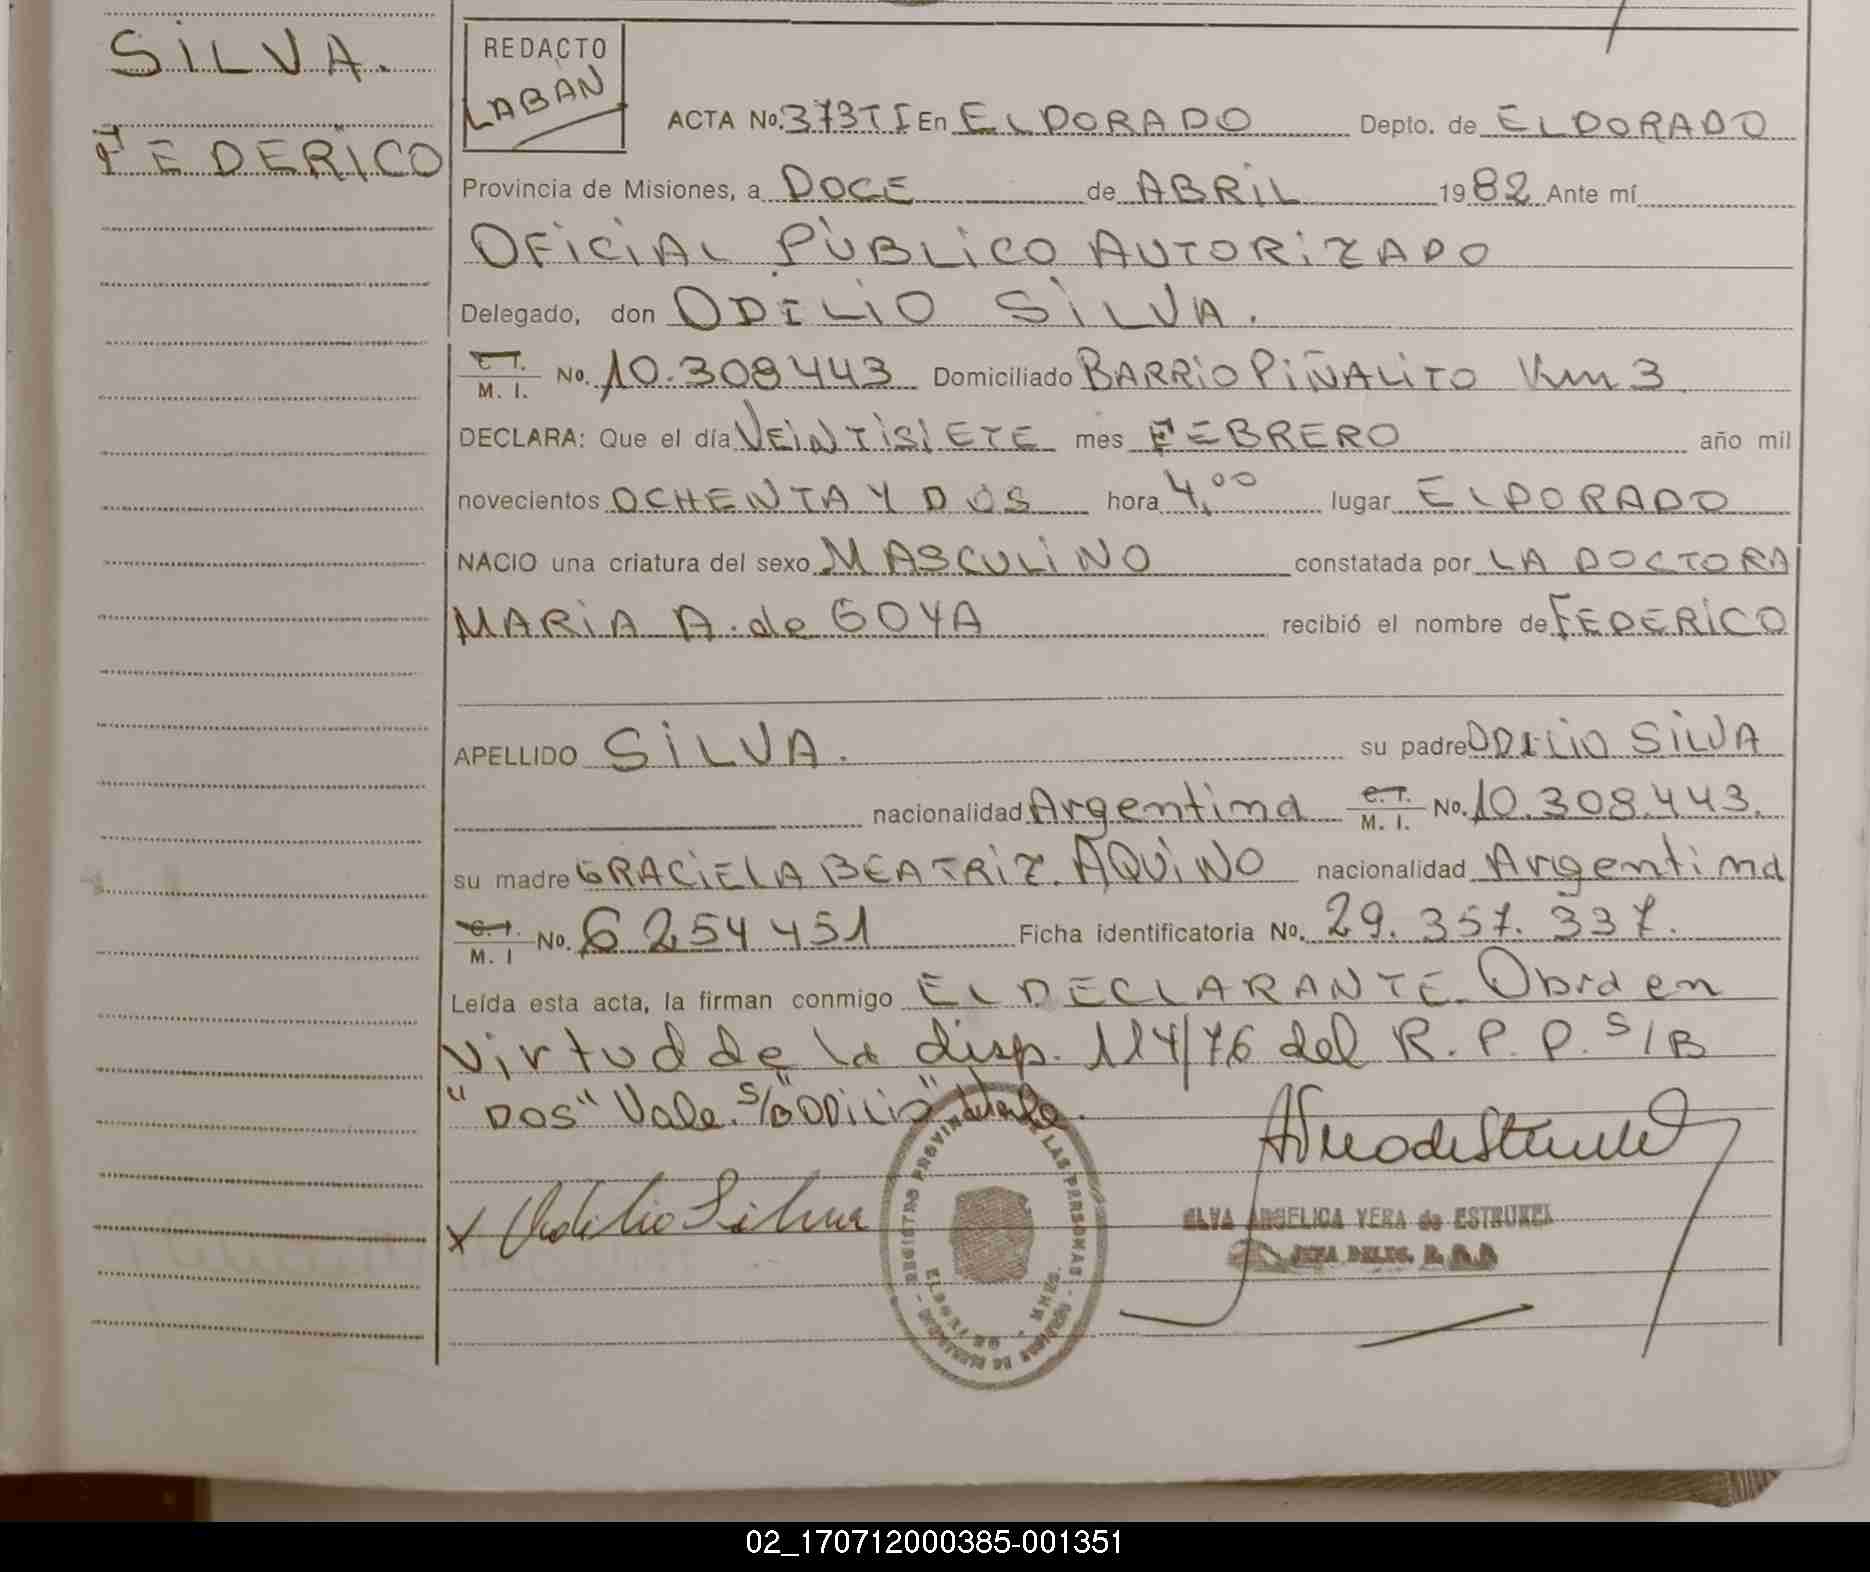 SILVA.
FEDERICO
REDACTO
LABAN
ACTA No. 373 TI En ELDORADO Depto. de ELDORADO
Provincia de Misiones, a DOCE de ABRIL 1982 Ante mí
OFICIAL PÚBLICO AUTORIZADO
Delegado, don ODILIO SILVA.
C.I. M. I. No. 10.308443 Domiciliado BARRIO PIÑALITO Km 3
DECLARA: Que el día VEINTISIETE mes FEBRERO año mil
novecientos OCHENTA Y DOS hora 4,00 lugar ELDORADO
NACIO una criatura del sexo MASCULINO constatada por LA DOCTORA
MARIA A. de GOYA recibió el nombre de FEDERICO
APELLIDO SILVA. su padre ODILIO SILVA
nacionalidad Argentina C.I. M. I. No. 10.308.443.
su madre GRACIELA BEATRIZ AQUINO nacionalidad Argentina
C.I. M. I No. 6254451 Ficha identificatoria No. 29.357.337.
Leída esta acta, la firman conmigo EL DECLARANTE. Obrd en
virtud de la disp. 114/76 del R. P. P. S/B
"DOS" Vale. S/B "ODILIO" Vale.
x Odilio Silva
REGISTRO PROVINCIAL DE LAS PERSONAS
ELVA ANGELICA VERA de ESTRUKEL
JEFA DELEG. R. P. P.
02_170712000385-001351